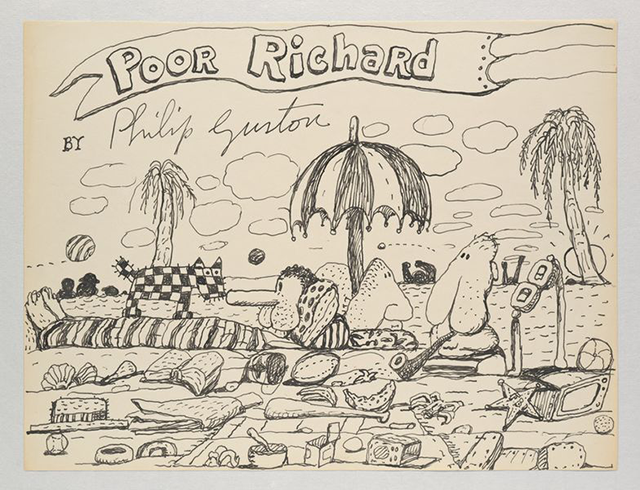 POOR RICHARD
BY Philip Guston